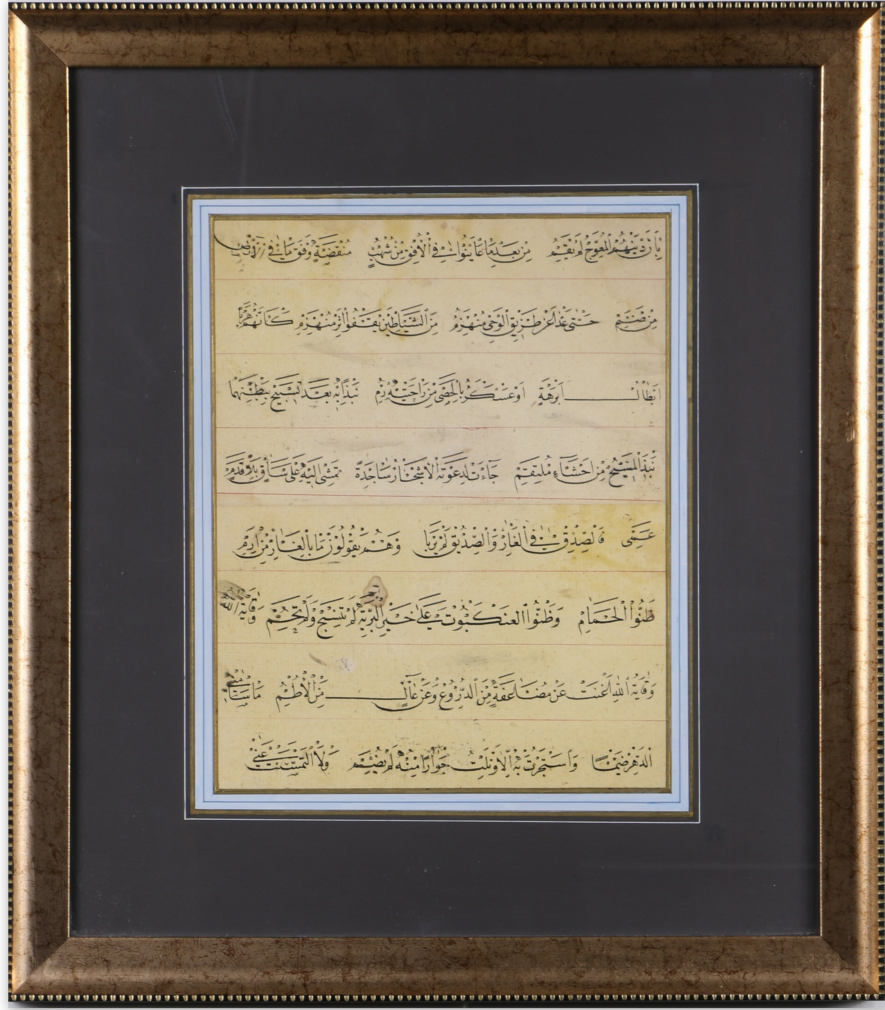 بِأَنَّ دِينَهُمُ الْمُعْوَجَّ لَمْ يَقُمِ مِنْ بَعْدِ مَا عَايَنُوا فِي الْأُفْقِ مِنْ شُهُبٍ مُنْقَضَّةٍ وَفْقَ مَا فِي الْأَرْضِ
مِنْ صَنَمٍ حَتّٰى غَدَا عَنْ طَرِيقِ الْوَحْيِ مُنْهَزِمٌ مِنَ الشَّيَاطِينِ يَقْفُوا اثْرَ مُنْهَزِمٍ كَأَنَّهُمْ هَرَبًا
ابْطَالُ ابْرَهَةٍ اوْ عَسْكَرٌ بِالْحَصٰى مِنْ رَاحَتَيْهِ رُمِ نَبْذًا بِهِ بَعْدَ تَسْبِيحٍ بِبَطْنِهِمَا
نَبْذَ الْمُسَبِّحِ مِنْ احْشَاءِ مُلْتَقِمِ جَاءَتْ لِدَعْوَتِهِ الْاَشْجَارُ سَاجِدَةً تَمْشِي الَيْهِ عَلٰى سَاقٍ بِلَا قَدَمِ
عَمِى فَالصِّدْقُ فِي الْغَارِ وَالصِّدِّيقُ لَمْ يَرِيَا وَهُمْ يَقُولُونَ مَا بِالْغَارِ مِنْ ارِمِ
ظَنُّوا الْحَمَامَ وَظَنُّوا الْعَنْكَبُوتَ عَلٰى خَيْرِ الْبَرِيَّةِ لَمْ تَنْسُجْ وَلَمْ تَحُمِ وِقَايَةُ اللّٰهِ
وِقَايَةُ اللّٰهِ اغْنَتْ عَنْ مُضَاعَفَةٍ مِنَ الدُّرُوعِ وَعَنْ عَالٍ مِنَ الْاُطُمِ مَا سَامَنِي
الدَّهْرُ ضَيْمًا وَاسْتَجَرْتُ بِهِ الَّا وَنِلْتُ جِوَارًا مِنْهُ لَمْ يُضَمِ وَلَا الْتَمَسْتُ غِنٰى